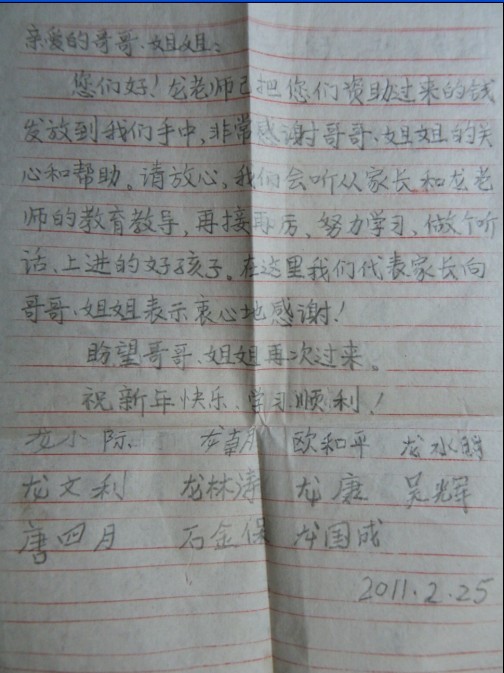 亲爱的哥哥、姐姐：
您们好！龙老师已把您们资助过来的钱
发放到我们手中，非常感谢哥哥、姐姐的关
心和帮助。请放心，我们会听从家长和龙老
师的教育教导，再接再厉、努力学习、做个听
话、上进的好孩子。在这里我们代表家长向
哥哥、姐姐表示衷心地感谢！
盼望哥哥、姐姐再次过来。
祝新年快乐、学习顺利！
龙小际 龙 欧和平 龙水
龙文利 龙林涛 龙康 吴辉
唐四月 石金保 龙国成
2011.2.25